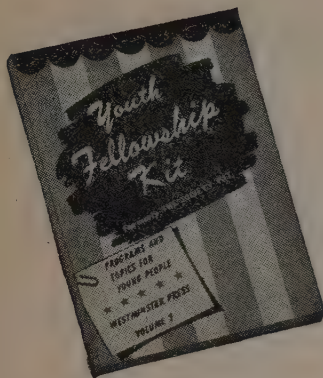 Youth
Fellowship
Kit
PROGRAMS AND
TOPICS FOR
YOUNG PEOPLE
WESTMINSTER PRESS
VOLUME 9